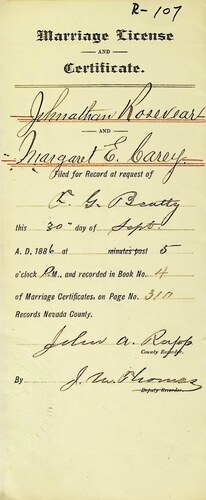 R-107
Marriage License
AND
Certificate.
Johnathan Rosevear
AND
Margaret E. Carey.
Filed for Record at request of
F. G. Beatty
this 30" day of Sept.
A. D., 1886 at minutes past 5
o'clock P.M., and recorded in Book No. 4
of Marriage Certificates, on Page No. 310
Records Nevada County.
John A. Rapp
County Recorder.
By J. M. Thomas
Deputy Recorder.